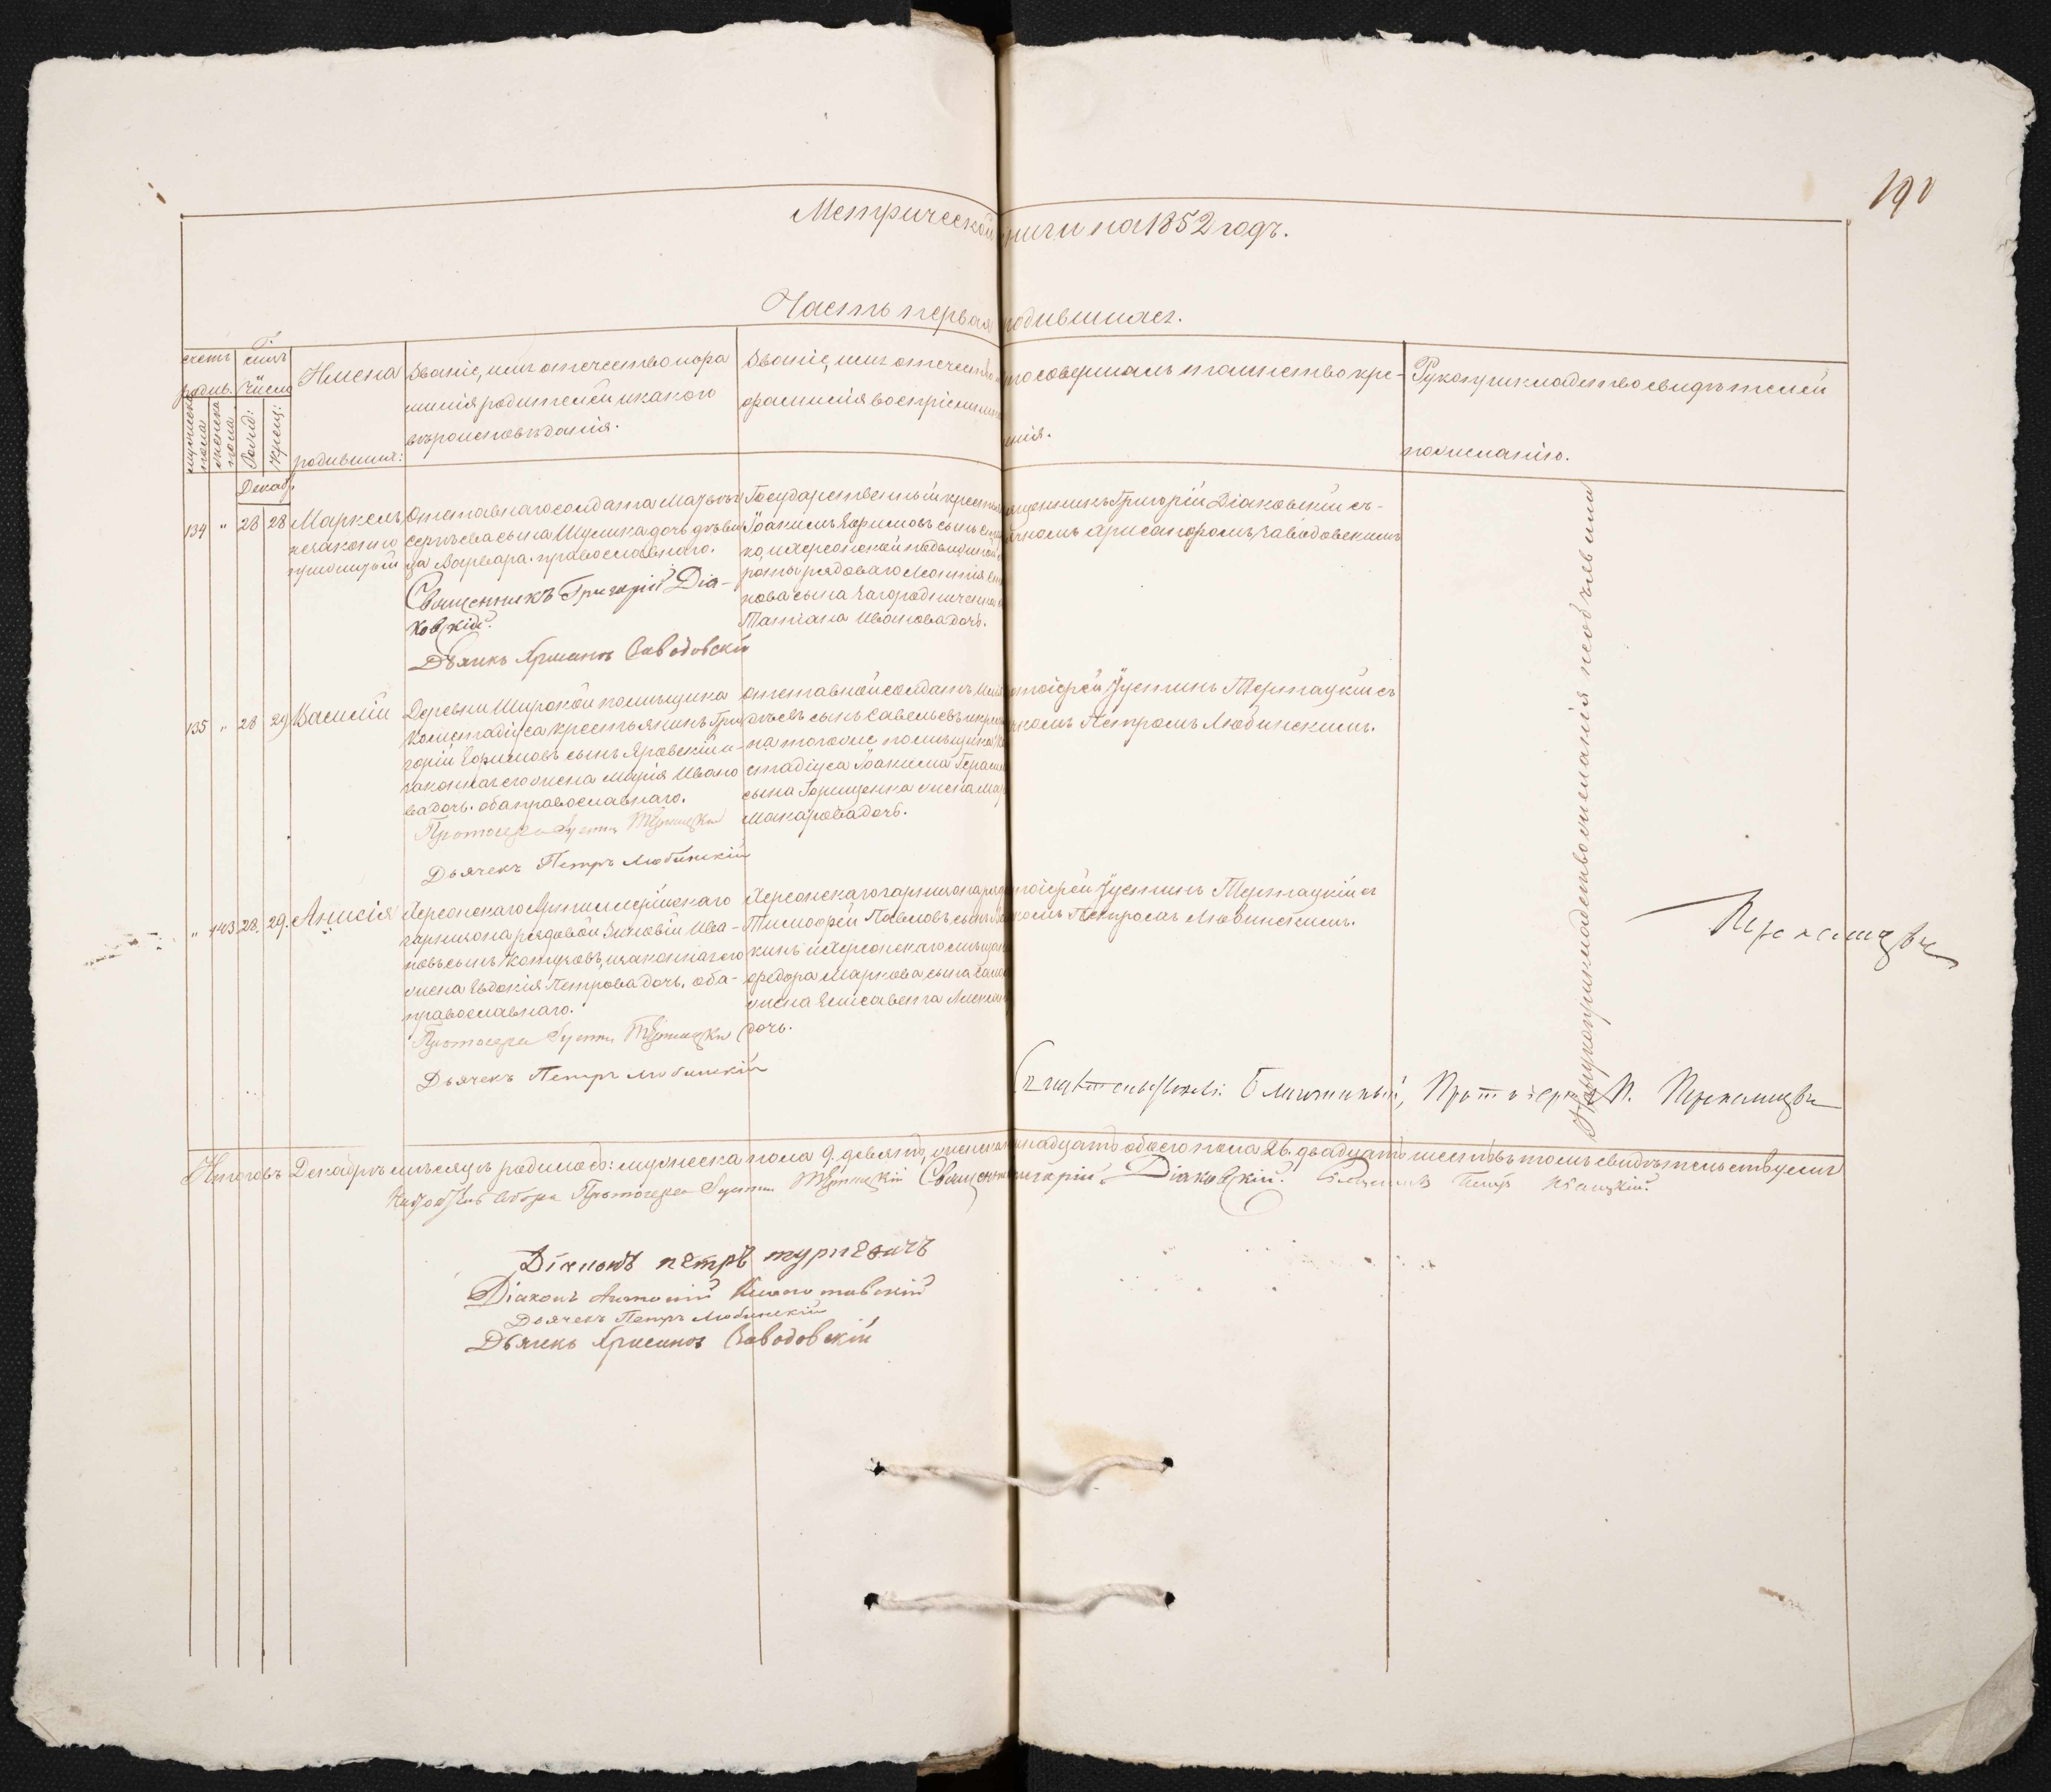 190
Метрической книги на 1852 годъ.
Часть первая родившихся.
счетъ родив.
мужеска пола
женска пола
Числа
Рожд:
Крещ:
Имена
родивших:
Званіе, имя отчество и фа
милія родителей и какого
вѣроисповѣданія.
Званіе, имя отчество
фамилія воспріемни
то совершалъ таинство кре-
щенія.
Рукоприкладство свидѣтелей
по желанію.
Декаб.
134 „ 28 28
Маркелъ
незаконно
прижитый
Отставнаго солдата Матвѣя
Сергѣева сына Шулика дочь дѣви
ца Варвара. православнаго.
Священникъ Григорій Діа-
ковскій.
Дьячекъ Хрисанфъ Заводовскій
Государственный крестья
Іоакимъ Ефимовъ сынъ
ко и Херсонской подвижной
роты рядоваго Леонтія
нова сына Загородниченка
Татіана Иванова дочь.
ященникъ Григорій Діаковскій съ
ячкомъ Хрисанфомъ Заводовскимъ
135 „ 28 29
Василій
Деревни Широкой помѣщика
Комстадіуса крестьянинъ Гри
горій Ефимовъ сынъ Яровскій и
законная его жена Марія Ивано
ва дочь. оба православнаго.
Протоіерей Іустинъ Тертацкій
Дьячекъ Петръ Любинскій
отставной солдатъ
дѣевъ сынъ Савельевъ и кресть
на того же помѣщика
стадіуса Іоакима Гераси
сына Горищенка жена Мар
Макарова дочь.
отоіерей Іустинъ Тертацкій съ
чкомъ Петромъ Любинскимъ.
„ 143 28. 29.
Анисія
Херсонскаго Артиллерійскаго
гарнизона рядовой Зиновій Ива-
новъ сынъ Котуховъ, и законная его
жена Евдокія Петрова дочь. оба
православнаго.
Протоіерей Іустинъ Тертацкій
Дьячекъ Петръ Любинскій
Херсонскаго гарнизона ряд
Тимофей Павловъ сынъ
кинъ и Херсонскаго мѣщан
Федора Маркова сына
жена Елисавета Алексан
дочь.
отоіерей Іустинъ Тертацкій съ
комъ Петромъ Любинскимъ.
На рукоприкладство желанія необъявили
Свидѣтельствовалъ: Благочинный, Протоіерей
Итого въ Декабрѣ мѣсяцѣ родилось: мужеска пола 9. девять, женска надцать обоего пола 26. двадцать шесть въ томъ свидѣтельствуемъ
Собора Протоіерей Іустинъ Тертацкій Священникъ Григорій Діаковскій. Священникъ Петръ
Діаконъ Петръ Турчевичъ
Діаконъ Антоній
Дьячекъ Петръ Любинскій
Дьячекъ Хрисанфъ Заводовскій